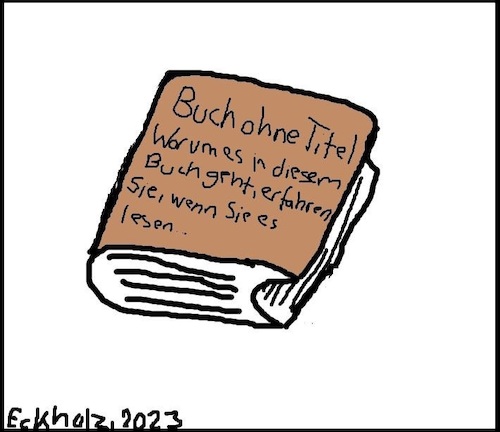 Buch ohne Titel
Worum es in diesem
Buch geht, erfahren
Sie, wenn Sie es
lesen..
Eckholz, 2023